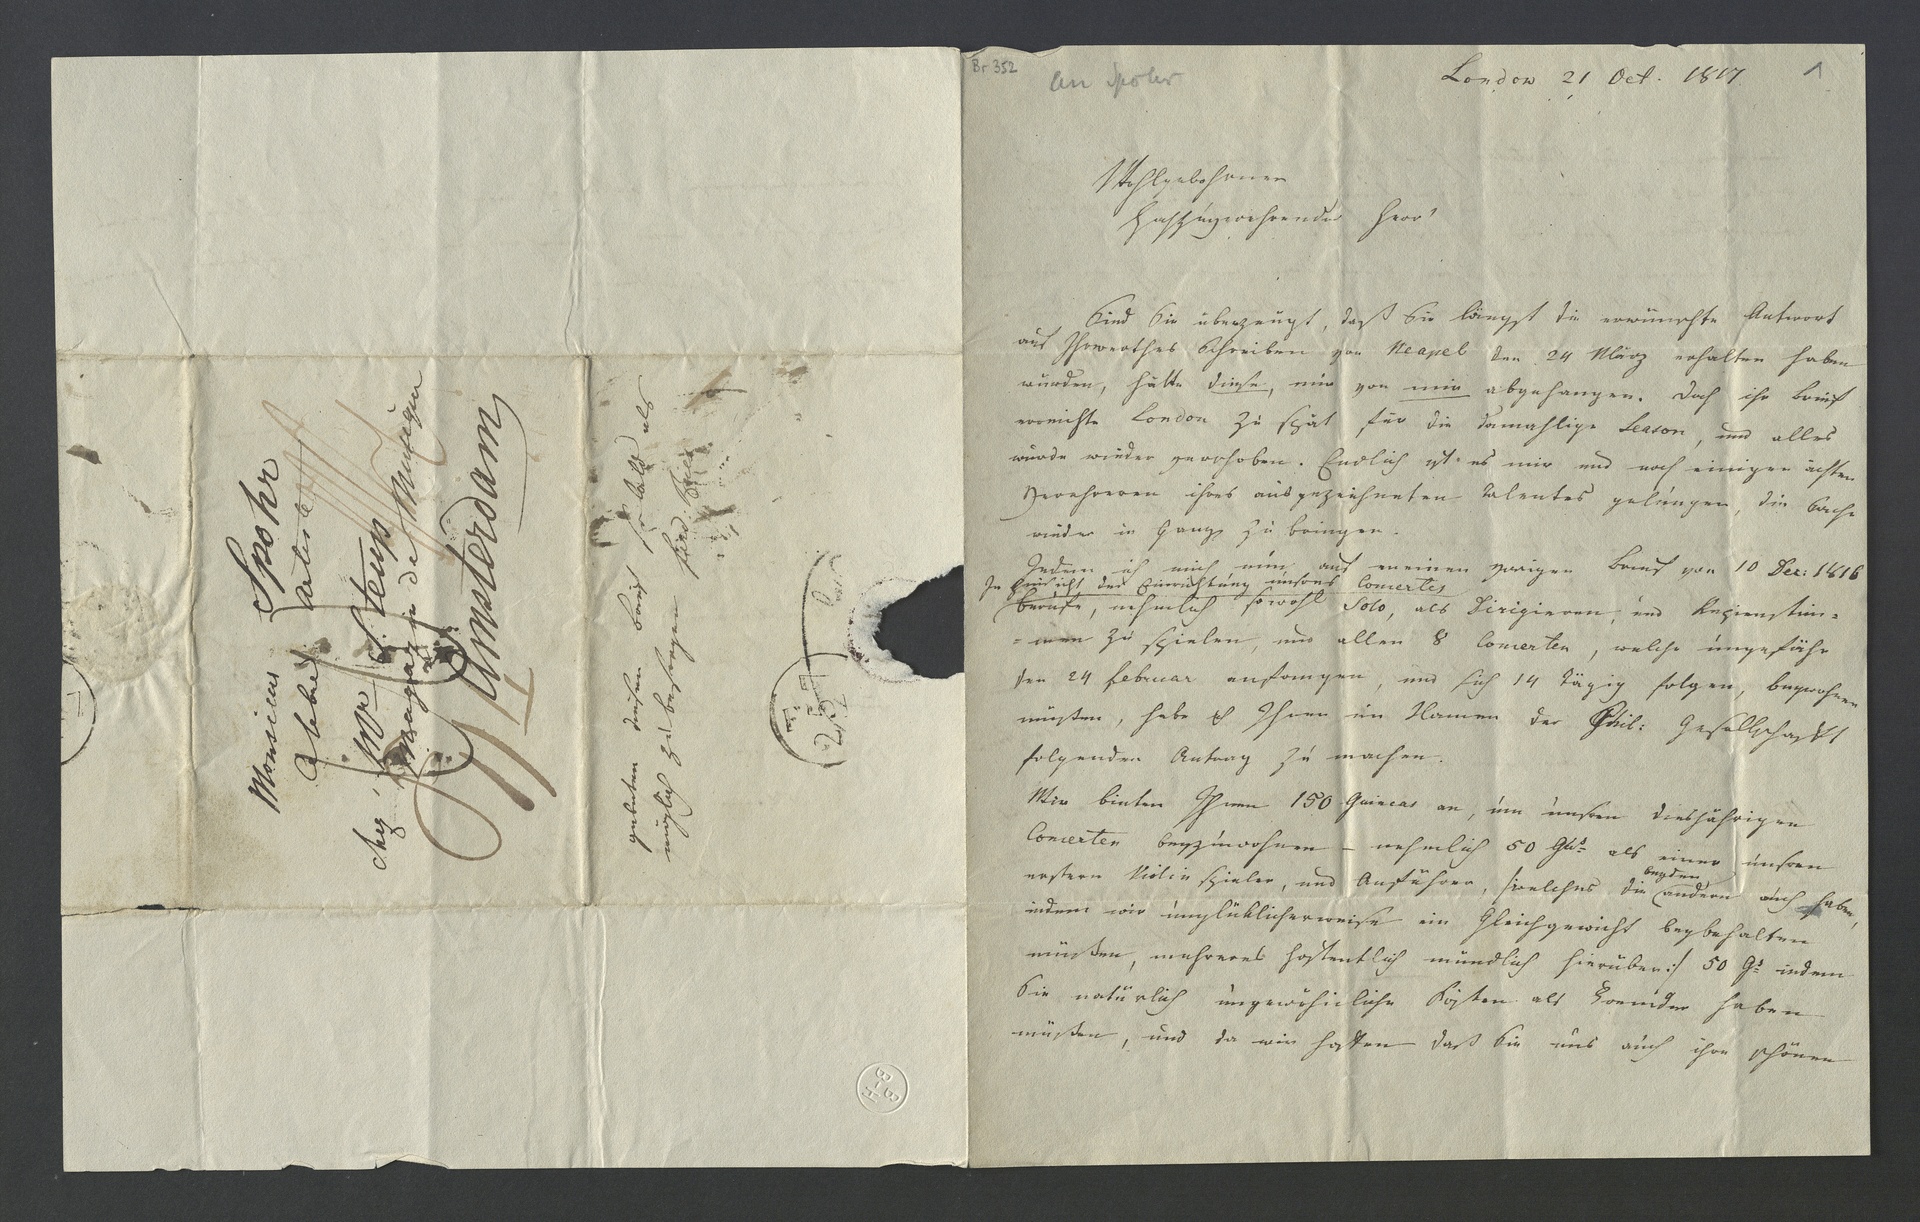 Monsieur Spohr
Célebre artiste
chez Mr Steup
Magazin de Musique
Amsterdam
gebeten diesen Brief so bald als
möglich zu besorgen
Br 352
An Spohr
1
London 21 Oct. 1817.
Wohlgebohrner
Hochzuverehrender Herr!
Sind Sie überzeugt, daß Sie längst die erwünschte Antwort
auf Ihr werthes Schreiben von Neapel den 24 März erhalten haben
würden, hätte diese, nur von mir abgehangen. Doch ihr Brief
erreichte London zu spät für die damahlige Season, und alles
wurde wieder verschoben. Endlich ist es mir und noch einigen ächten
Verehrern ihres ausgezeichneten Talentes gelungen, die Sache
wieder in Gang zu bringen.
Indem ich mich nun auf meinen vorigen Brief von 10 Dec: 1816
In Hinsicht der Einrichtung unsres Concertes
berufe, nehmlich sowohl Solo, als Dirigieren, und Repienstim=
=men zu spielen, und allen 8 Concerten, welche ungefähr
den 24 februar anfangen, und sich 14 Tägig folgen, beywohnen
müßten, habe ich Ihnen im Namen der Phil: Gesellschaft
folgenden Antrag zu machen.
Wir bieten Ihnen 150 Guineas an, um unsren diesjährigen
Concerten beyzuwohnen – nehmlich 50 Gs als einer unsren
beyden
ersten Violin spieler, und Anführer, (welches die andern auch haben,
indem wir unglücklicherweise ein Gleichgewicht beybehalten
müßen, mehreres hoffentlich mündlich hierüber:/ 50 Gs indem
Sie natürlich ungewöhnliche Kosten als Fremder haben
müßen, und da wir hoffen daß Sie uns auch ihre schönen